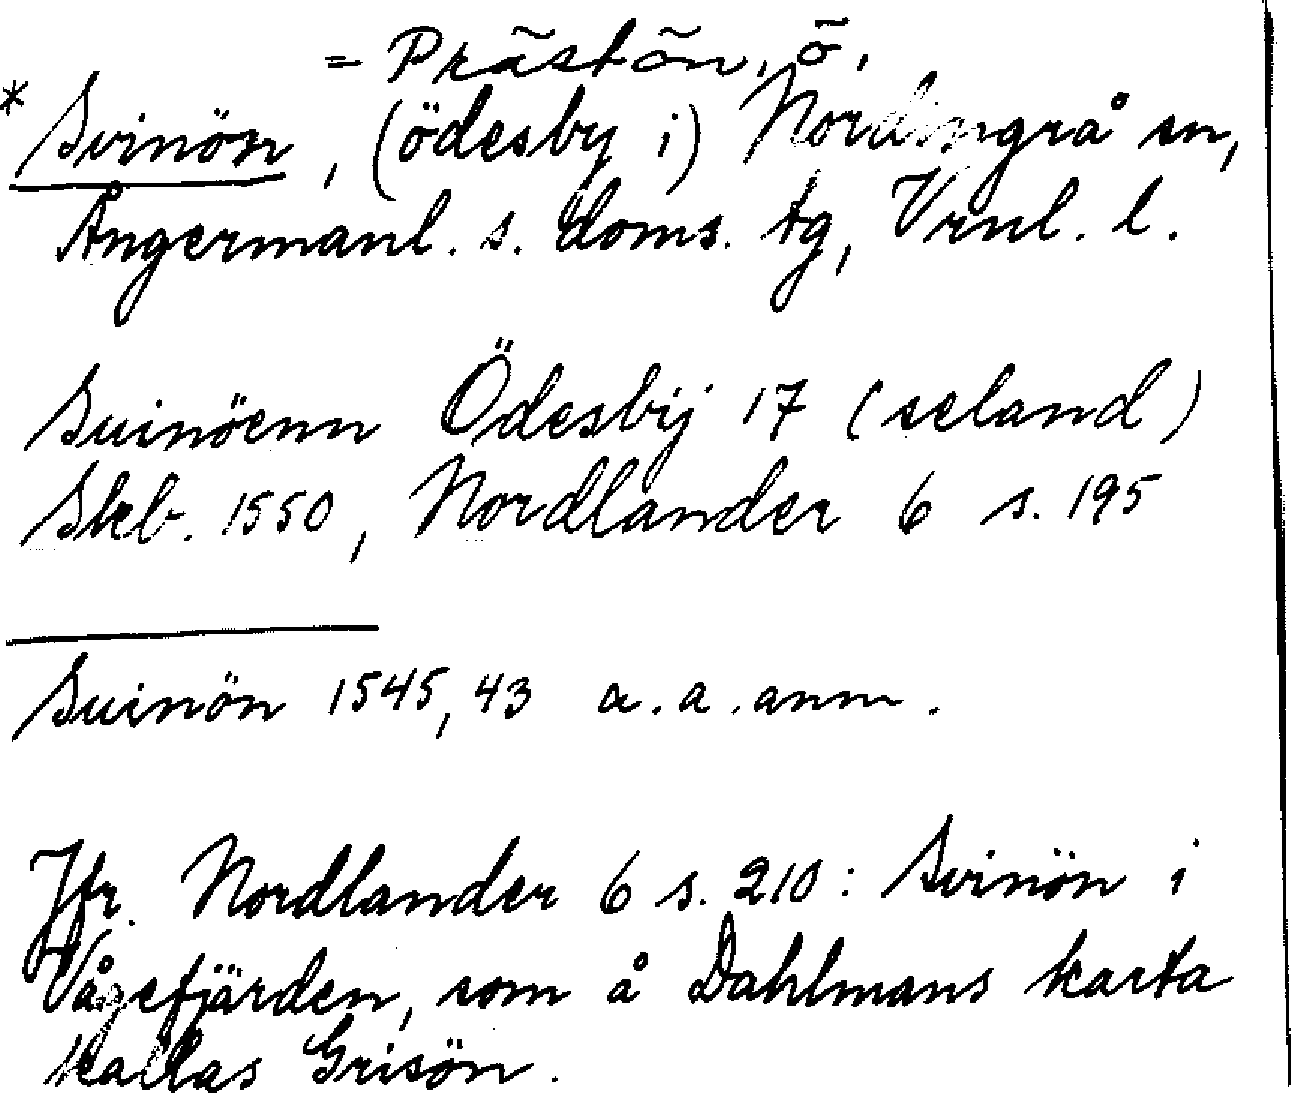 = Prästön, ö,
* Svinön, (ödesby i) Nordingrå sn,
Ångermanl. s. doms. tg, Vrnl. l.
Suinöenn Ödesbij 17 (seland)
Skb. 1550, Nordlander 6 s. 195
Suinön 1545, 43 a. a. anm.
Jfr. Nordlander 6 s. 210: Svinön i
Vågefjärden, som å Dahlmans karta
kallas Grisön.